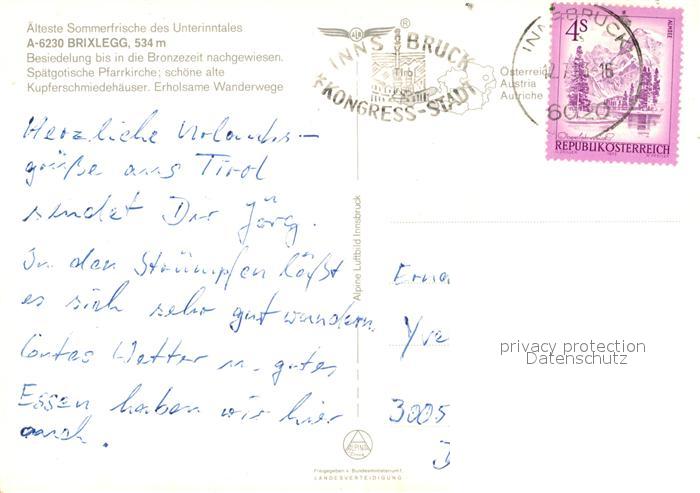 Älteste Sommerfrische des Unterinntales
A-6230 BRIXLEGG, 534 m
Besiedelung bis in die Bronzezeit nachgewiesen.
Spätgotische Pfarrkirche; schöne alte
Kupferschmiedehäuser. Erholsame Wanderwege
INNSBRUCK
Tirol
KONGRESS-STADT
Österreich
Austria
Autriche
INNSBRUCK
6020
4S
ALMSEE
REPUBLIK ÖSTERREICH
Herzliche Urlaubs-
grüße aus Tirol
sendet Dir Jörg.
In den Strümpfen läßt
es sich sehr gut wandern.
Gutes Wetter u. gutes
Essen haben wir hier
auch.
Alpine Luftbild Innsbruck
Erna
Yve
3005
privacy protection
Datenschutz
ALPINE
Freigegeben v. Bundesministerium f.
LANDESVERTEIDIGUNG